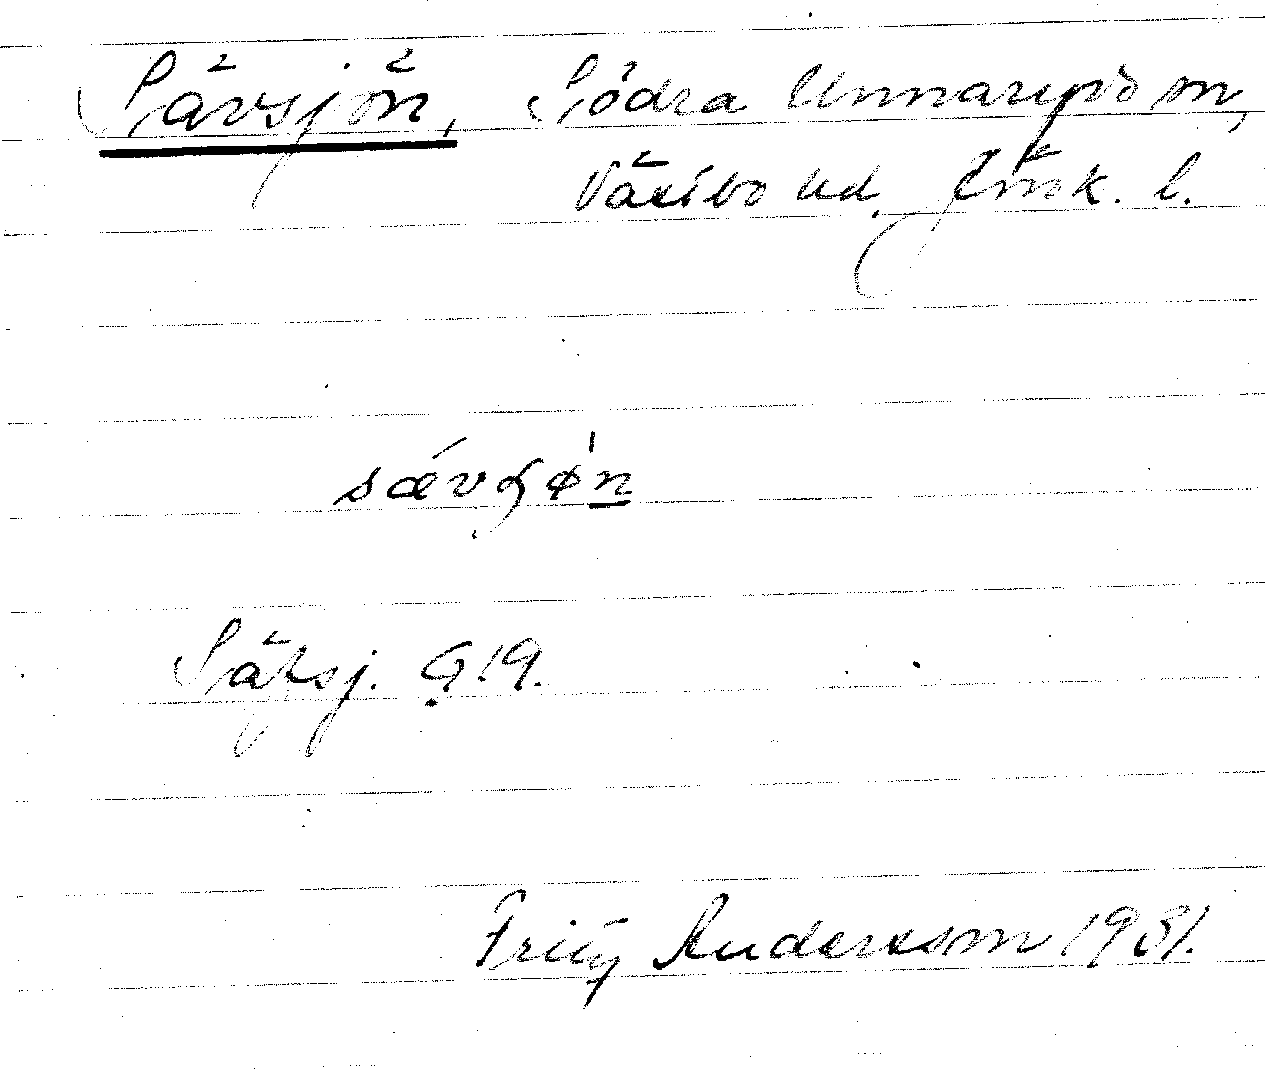 Sävsjön, Södra Unnaryds sn,
Västbo hd. Jönk. l.
sævʂøn
Säfsj. G 19.
Fritz Andersson 1931.